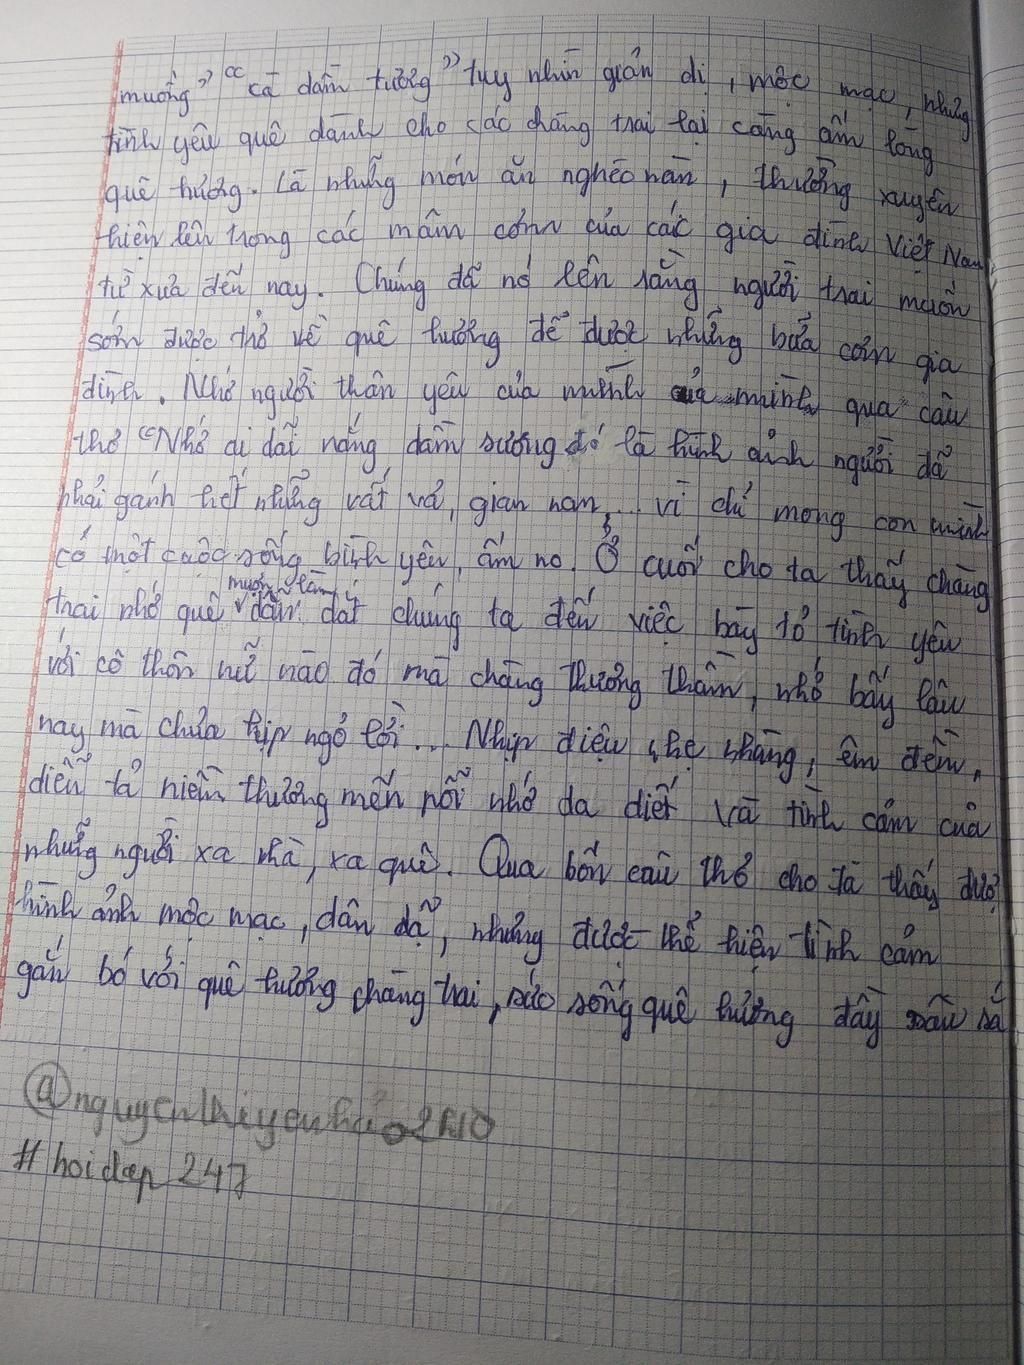 muống" "cà dầm tương" tuy nhìn giản dị, mộc mạc, nhưng
tình yêu quê dành cho các chàng trai lại càng ấm lòng
quê hương. Là những món ăn nghèo nàn, thường xuyên
hiện lên trong các mâm cơm của các gia đình Việt Nam
từ xưa đến nay. Chúng đã nó lên rằng người trai muốn
sớm được trở về quê hương để được những bữa cơm gia
đình. Nhớ người thân yêu của mình của mình qua câu
thơ "Nhớ ai dãi nắng dầm sương đó là hình ảnh người đã
phải gánh hết những vất vả, gian nan, ... vì chỉ mong con mình
có một cuộc sống bình yên, ấm no. Ở cuối cho ta thấy chàng
trai nhớ quê muốn dẫn dắt chúng ta đến việc bày tỏ tình yêu
với cô thôn nữ nào đó mà chàng thương thầm, nhớ bấy lâu
nay mà chưa kịp ngỏ lời... Nhịp điệu nhẹ nhàng, êm đềm,
diễn tả niềm thương mến nỗi nhớ da diết và tình cảm của
những người xa nhà, xa quê. Qua bốn câu thơ cho ta thấy đượ
hình ảnh mộc mạc, dân dã, nhưng được thể hiện tình cảm
gắn bó với quê hương chàng trai, sức sống quê hương đầy sâu sắ
#hoidap247